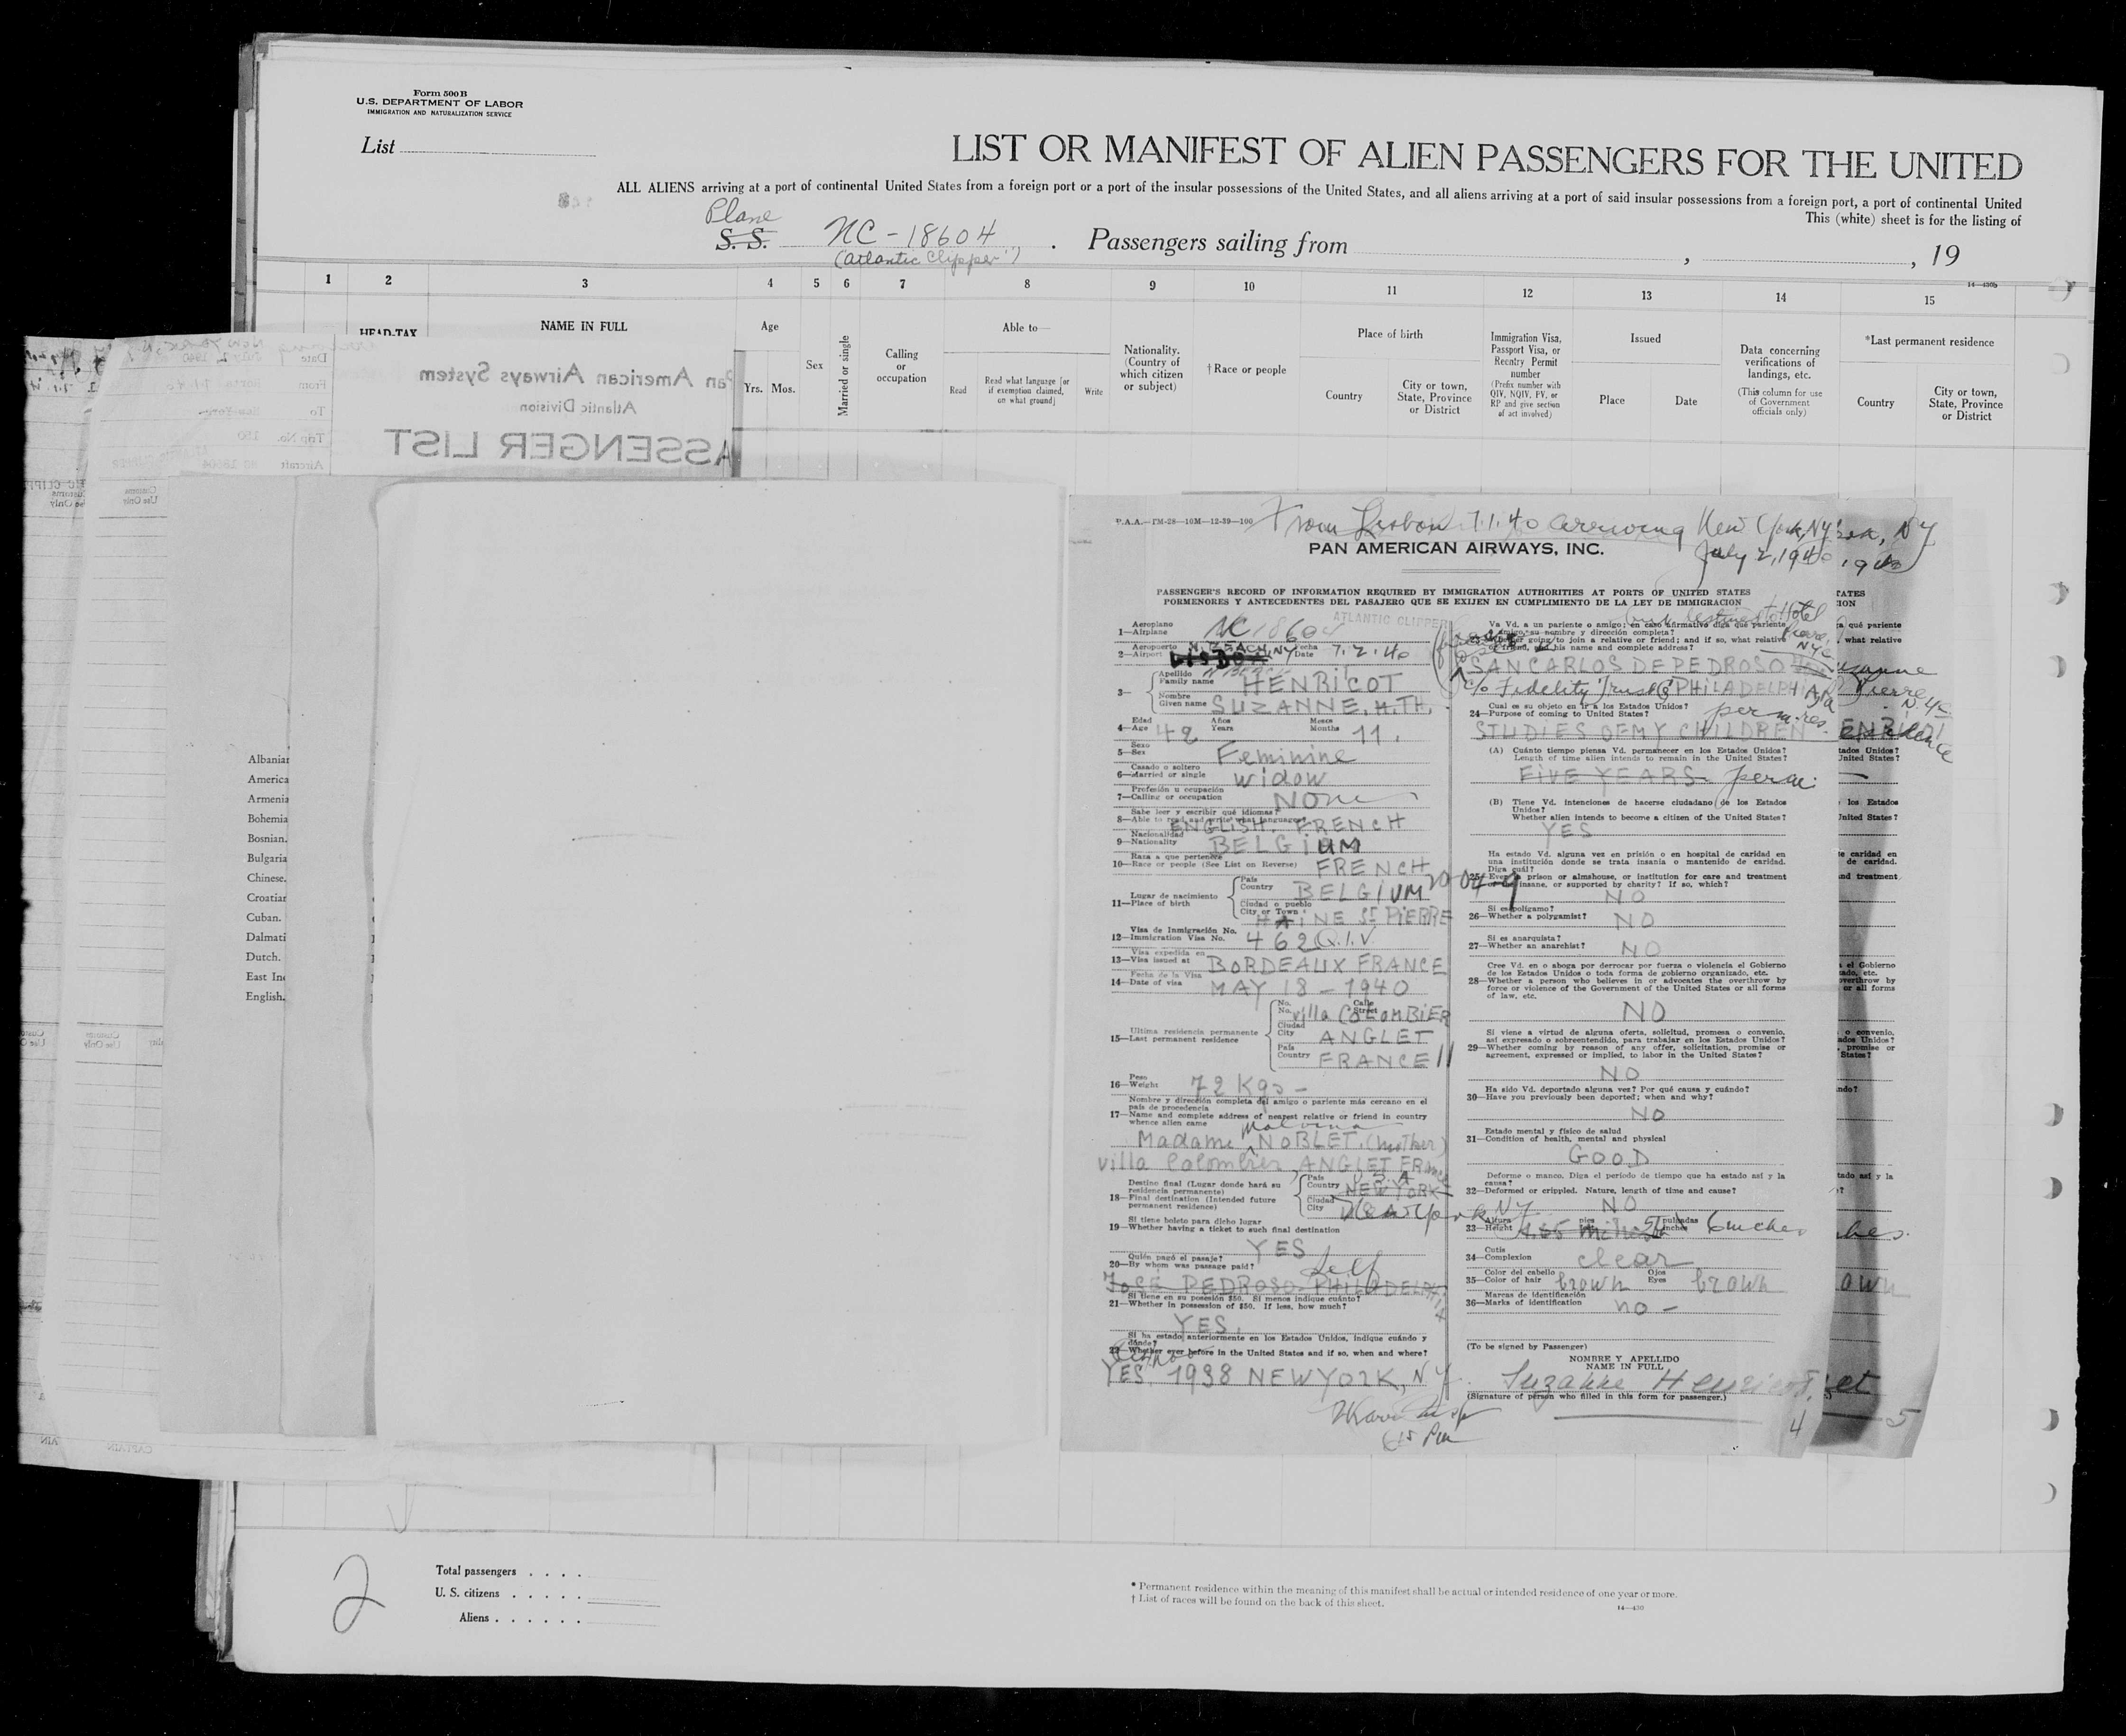 Form 500B
U.S. DEPARTMENT OF LABOR
IMMIGRATION AND NATURALIZATION SERVICE
List
LIST OR MANIFEST OF ALIEN PASSENGERS FOR THE UNITED
ALL ALIENS arriving at a port of continental United States from a foreign port or a port of the insular possessions of the United States, and all aliens arriving at a port of said insular possessions from a foreign port, a port of continental United
This (white) sheet is for the listing of
Plane
S. S. NC-18604 . Passengers sailing from , , 19
(Atlantic Clipper)
14—430b
1 2 3 4 5 6 7 8 9 10 11 12 13 14 15
HEAD-TAX
NAME IN FULL
Age
Yrs. Mos.
Sex
Married or single
Calling
or
occupation
Able to—
Read
Read what language [or
if exemption claimed,
on what ground]
Write
Nationality.
(Country of
which citizen
or subject)
†Race or people
Place of birth
Country
City or town,
State, Province
or District
Immigration Visa,
Passport Visa, or
Reentry Permit
number
(Prefix number with
QIV, NQIV, PV, or
RP and give section
of act involved)
Issued
Place
Date
Data concerning
verifications of
landings, etc.
(This column for use
of Government
officials only)
*Last permanent residence
Country
City or town,
State, Province
or District
Pan American Airways System
Atlantic Division
ASSENGER LIST
Date July 2, 1940
From
To
Trip No. 150
Aircraft NC 18604
Customs
Use Only
CAPTAIN
Albanian
America
Armenia
Bohemia
Bosnian.
Bulgaria
Chinese.
Croatian
Cuban.
Dalmati
Dutch.
East Ind
English.
P.A.A.—TM-28—10M—12-39—100
From Lisbon 7.1.40 arriving New York, NY
July 2, 1940
PAN AMERICAN AIRWAYS, INC.
PASSENGER'S RECORD OF INFORMATION REQUIRED BY IMMIGRATION AUTHORITIES AT PORTS OF UNITED STATES
PORMENORES Y ANTECEDENTES DEL PASAJERO QUE SE EXIJEN EN CUMPLIMIENTO DE LA LEY DE IMMIGRACION
ATLANTIC CLIPPER
Aeroplano
1—Airplane NC 18604
Aeropuerto
2—Airport LISBOA N. BEACH, NY Fecha Date 7.2.40
3— Apellido
Family name HENRICOT
Nombre
Given name SUZANNE. H.TH.
Edad Años Meses
4—Age 42 Years Months 11.
Sexo
5—Sex Feminine
Casado o soltero
6—Married or single Widow
Profesión u ocupación
7—Calling or occupation None
Sabe leer y escribir qué idiomas?
8—Able to read and write what languages? ENGLISH. FRENCH
Nacionalidad
9—Nationality BELGIUM
Raza a que pertenece
10—Race or people (See List on Reverse) FRENCH
Lugar de nacimiento
11—Place of birth
País
Country BELGIUM
Ciudad o pueblo
City or Town HAINE ST PIERRE
Visa de Inmigración No.
12—Immigration Visa No. 462 Q.I.V.
Visa expedida en
13—Visa issued at BORDEAUX FRANCE
Fecha de la Visa
14—Date of visa MAY 18 - 1940
Ultima residencia permanente
15—Last permanent residence
No. Calle
No. Street villa COLOMBIER
Ciudad
City ANGLET
País
Country FRANCE
Peso
16—Weight 72 Kgs -
Nombre y dirección completa del amigo o pariente más cercano en el
país de procedencia
17—Name and complete address of nearest relative or friend in country
whence alien came
Malvina
Madame NOBLET. (mother)
villa Colombier, ANGLET FRANCE
Destino final (Lugar donde hará su
residencia permanente)
18—Final destination (Intended future
permanent residence)
País
Country NEW YORK U.S.A
Ciudad
City New York, NY
Si tiene boleto para dicho lugar
19—Whether having a ticket to such final destination
YES
Quién pagó el pasaje?
20—By whom was passage paid? Self
JOSÉ PEDROSO PHILADELPHIA
Si tiene en su posesión $50. Si menos indique cuánto?
21—Whether in possession of $50. If less, how much?
YES.
Si ha estado anteriormente en los Estados Unidos, indique cuándo y
dónde?
22—Whether ever before in the United States and if so, when and where?
YES. 1938 NEW YORK, NY.
Va Vd. a un pariente o amigo; en caso afirmativo diga qué pariente
o amigo, su nombre y dirección completa?
23—Whether going to join a relative or friend; and if so, what relative
or friend, and his name and complete address?
Hotel
Pierre,
NYC
SAN CARLOS DE PEDROSO
c/o Fidelity Trust Co PHILADELPHIA Pa
Cual es su objeto en ir a los Estados Unidos?
24—Purpose of coming to United States? perm. res.
STUDIES OF MY CHILDREN
(A) Cuánto tiempo piensa Vd. permanecer en los Estados Unidos?
Length of time alien intends to remain in the United States?
FIVE YEARS. perm.
(B) Tiene Vd. intenciones de hacerse ciudadano de los Estados
Unidos?
Whether alien intends to become a citizen of the United States?
YES
Ha estado Vd. alguna vez en prisión o en hospital de caridad en
una institución donde se trata insania o mantenido de caridad.
Diga cuál?
25—Ever in prison or almshouse, or institution for care and treatment
of the insane, or supported by charity? If so, which?
NO
Si es polígamo?
26—Whether a polygamist? NO
Si es anarquista?
27—Whether an anarchist? NO
Cree Vd. en o aboga por derrocar por fuerza o violencia el Gobierno
de los Estados Unidos o toda forma de gobierno organizado, etc.
28—Whether a person who believes in or advocates the overthrow by
force or violence of the Government of the United States or all forms
of law, etc.
NO
Si viene a virtud de alguna oferta, solicitud, promesa o convenio,
así expresado o sobreentendido, para trabajar en los Estados Unidos?
29—Whether coming by reason of any offer, solicitation, promise or
agreement, expressed or implied, to labor in the United States?
NO
Ha sido Vd. deportado alguna vez? Por qué causa y cuándo?
30—Have you previously been deported; when and why?
NO
Estado mental y físico de salud
31—Condition of health, mental and physical
GOOD
Deforme o manco. Diga el período de tiempo que ha estado así y la
causa?
32—Deformed or crippled. Nature, length of time and cause?
NO
Altura pies pulgadas
33—Height 5 feet 6 inches
Cutis
34—Complexion clear
Color del cabello Ojos
35—Color of hair brown Eyes brown
Marcas de identificación
36—Marks of identification no -
(To be signed by Passenger)
NOMBRE Y APELLIDO
NAME IN FULL
Suzanne Henricot
(Signature of person who filled in this form for passenger.)
4
5
2
Total passengers . . . .
U. S. citizens . . . . .
Aliens . . . . . .
* Permanent residence within the meaning of this manifest shall be actual or intended residence of one year or more.
† List of races will be found on the back of this sheet.
14—430